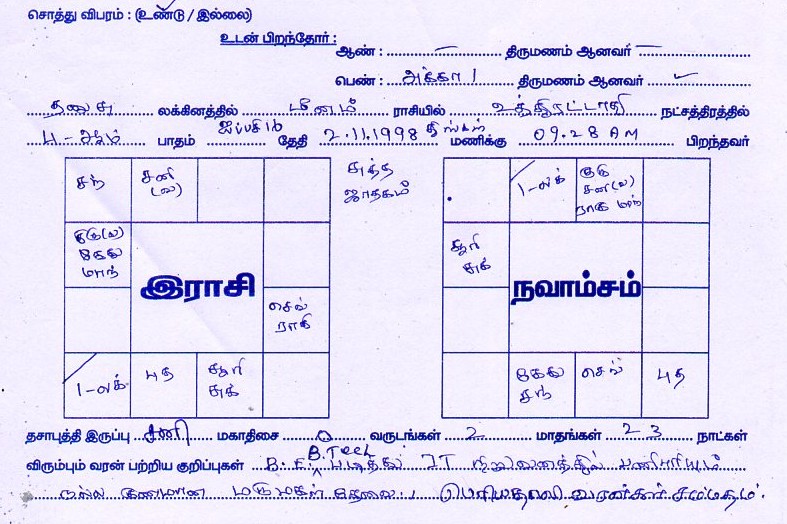 சொத்து விபரம் : (உண்டு / இல்லை)
உடன் பிறந்தோர் :
ஆண் : – திருமணம் ஆனவர் –
பெண் : அக்கா 1 திருமணம் ஆனவர் ✓
தனுசு லக்கினத்தில் மீனம் ராசியில் உத்திரட்டாதி நட்சத்திரத்தில்
4-ஆம் பாதம் ஐப்பசி 16 தேதி 2.11.1998 திங்கள் மணிக்கு 09.28 AM பிறந்தவர்
சந் சனி (வ)
சுத்த ஜாதகம்
1-லக் குரு சனி(வ) ராகு மாந்
குரு(வ) கேது மாந்
சூரி சுக்
இராசி
நவாம்சம்
செவ் ராகு
1-லக் புத சூரி சுக்
கேது சந் செவ் புத
தசாபுத்தி இருப்பு சனி மகாதிசை 0 வருடங்கள் 2 மாதங்கள் 23 நாட்கள்
விரும்பும் வரன் பற்றிய குறிப்புகள் B.E. B.Tech படித்து IT நிறுவனத்தில் பணிபுரியும்
நல்ல குணமான மருமகன் தேவை. வரன்கள் சம்மதம்.